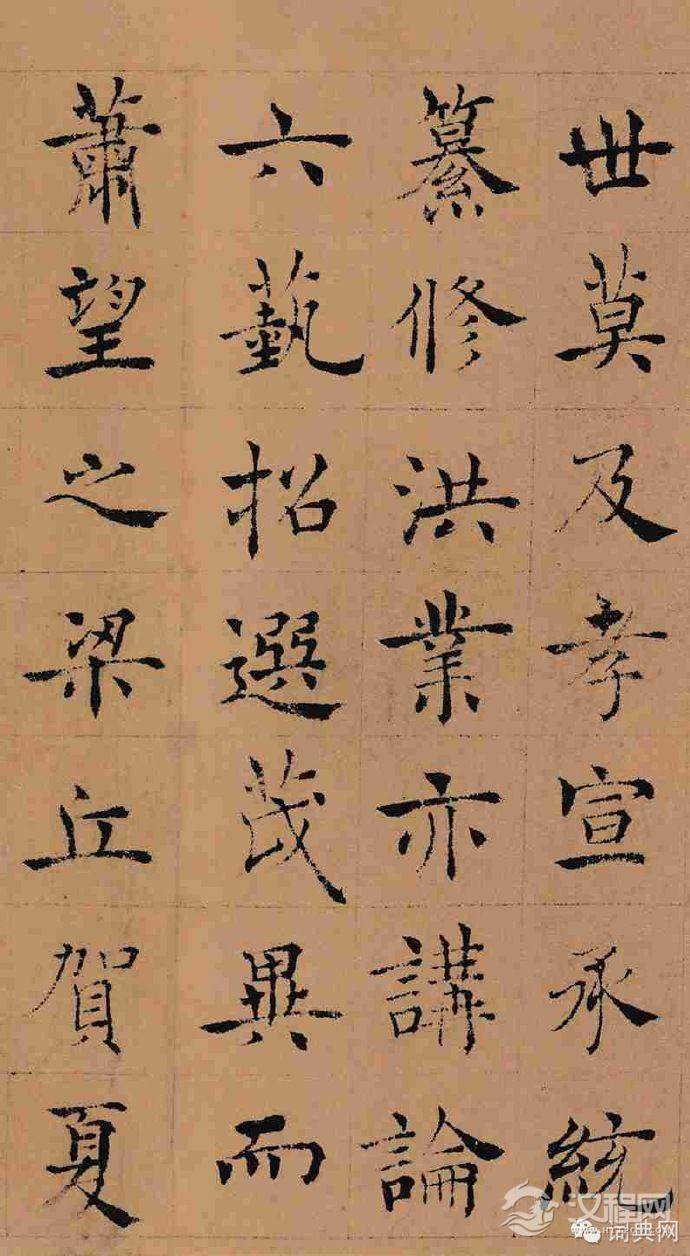 世莫及孝宣承統
纂修洪業亦講論
六藝招選茂異而
蕭望之梁丘賀夏
汉程网
词典网